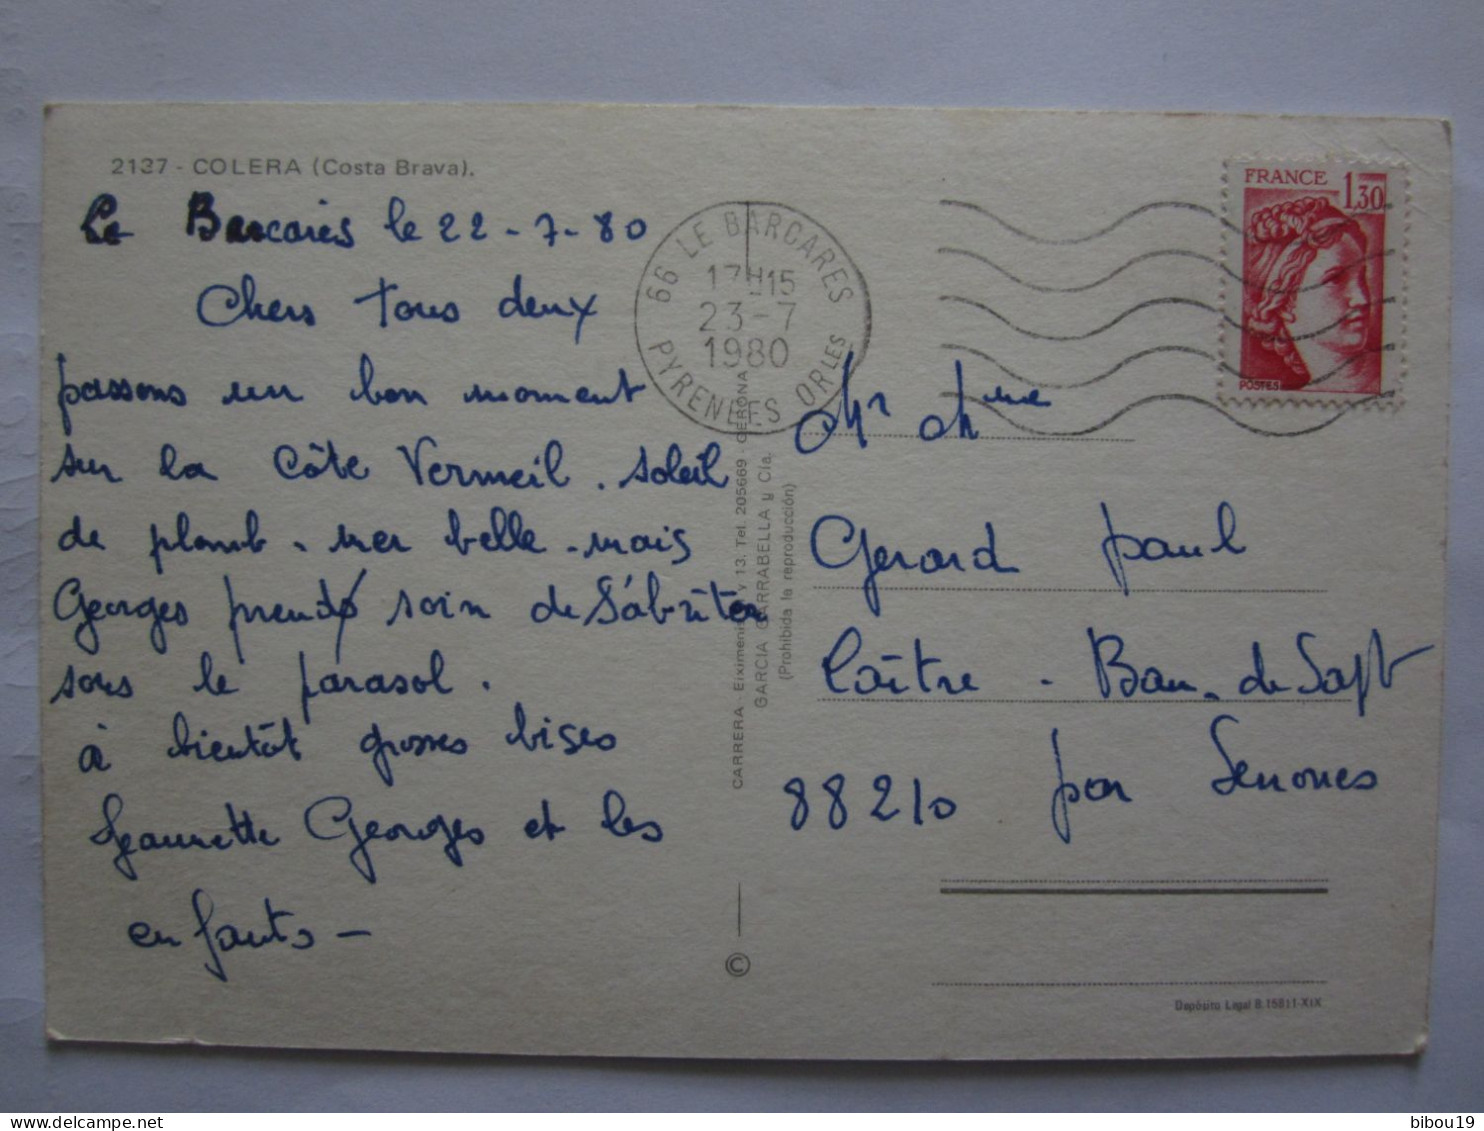 2137 - COLERA (Costa Brava).
Le Barcarès le 22-7-80
Chers tous deux
passons un bon moment
sur la Côte Vermeil. soleil
de plomb - mer belle - mais
Georges prend soin de s'abriter
sous le parasol.
à bientôt grosses bises
Jeannette Georges et les
enfants -
66 LE BARCARES
17H15
23-7
1980
PYRENEES ORLES
FRANCE 1,30
POSTES
CARRERA - Eiximenis, y 13. Tel. 205669 - GERONA
GARCIA GARRABELLA y Cía.
(Prohibida la reproducción)
©
Mr Mme
Gerard paul
Laître - Ban-de Sapt
88210 par Senones
Depósito Legal B. 15811-XIX
bibou19